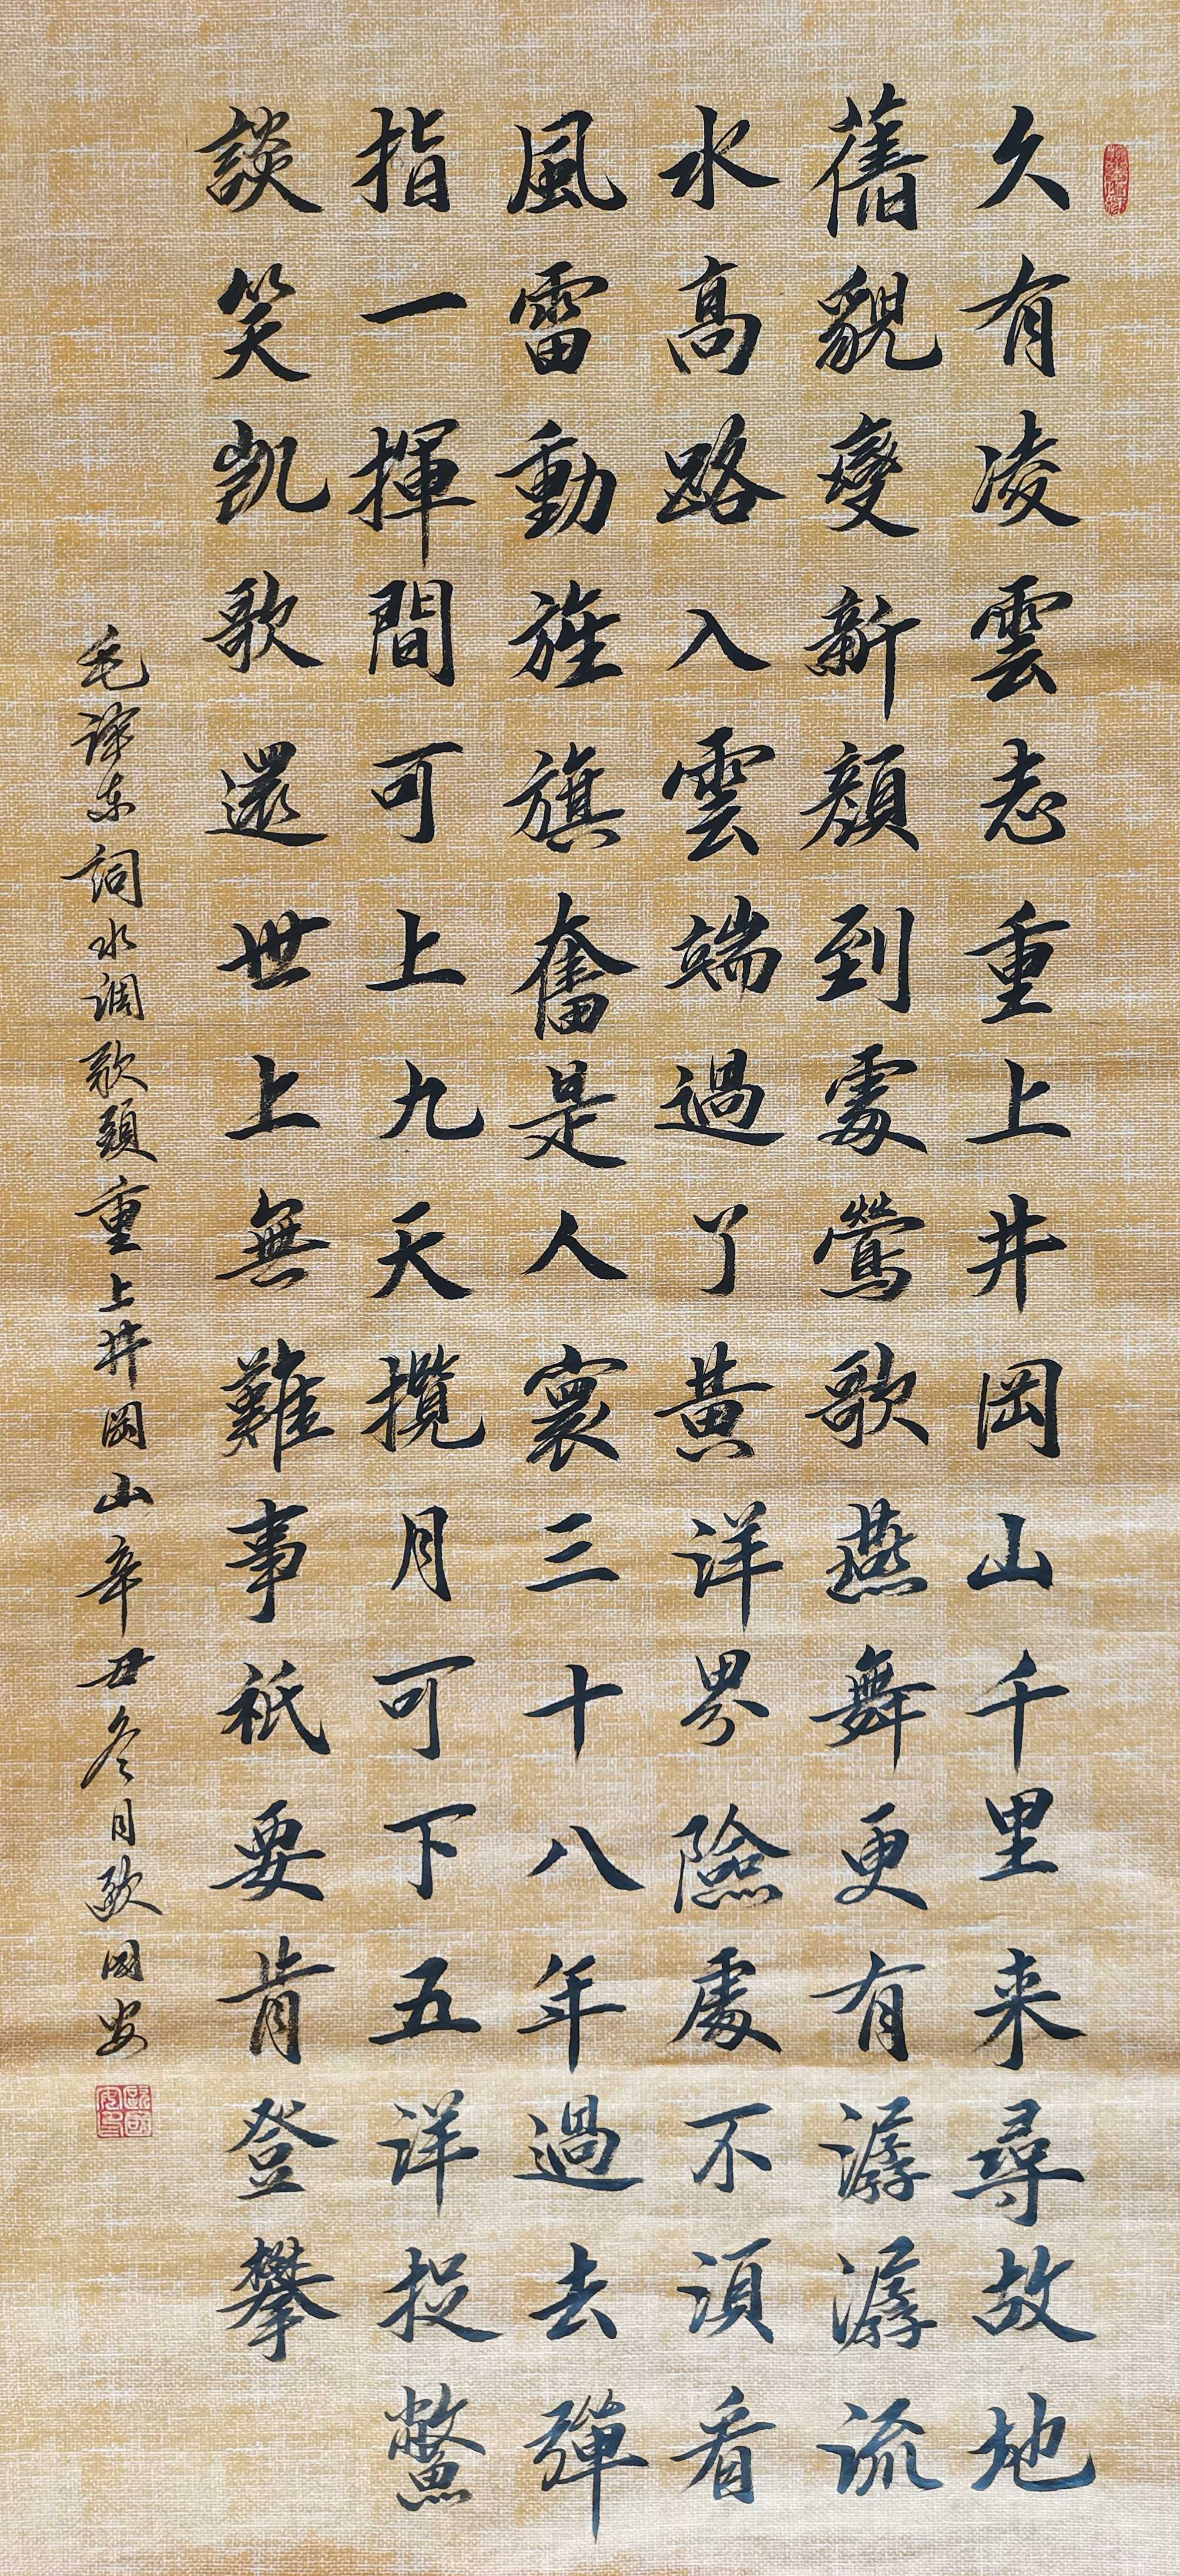 久有凌雲志重上井岡山千里来尋故地
舊貌變新顔到處鶯歌燕舞更有潺潺流
水高路入雲端過了黃洋界險處不須看
風雷動旌旗奮是人寰三十八年過去彈
指一揮間可上九天攬月可下五洋捉鱉
談笑凱歌還世上無難事衹要肯登攀
毛泽东詞水调歌頭重上井岡山辛丑冬月欧国安